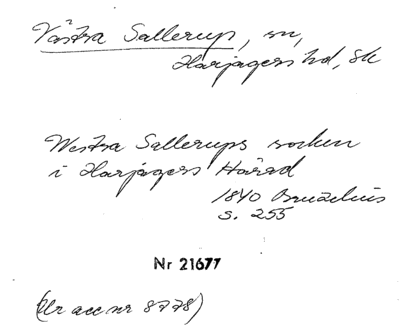 Västra Sallerup, sn,
Harjagers hd, Sk
Westra Sallerups socken
i Harjagers Härad
1840 Bruzelius
s. 255
Nr 21677
(Ur acc nr 8778)